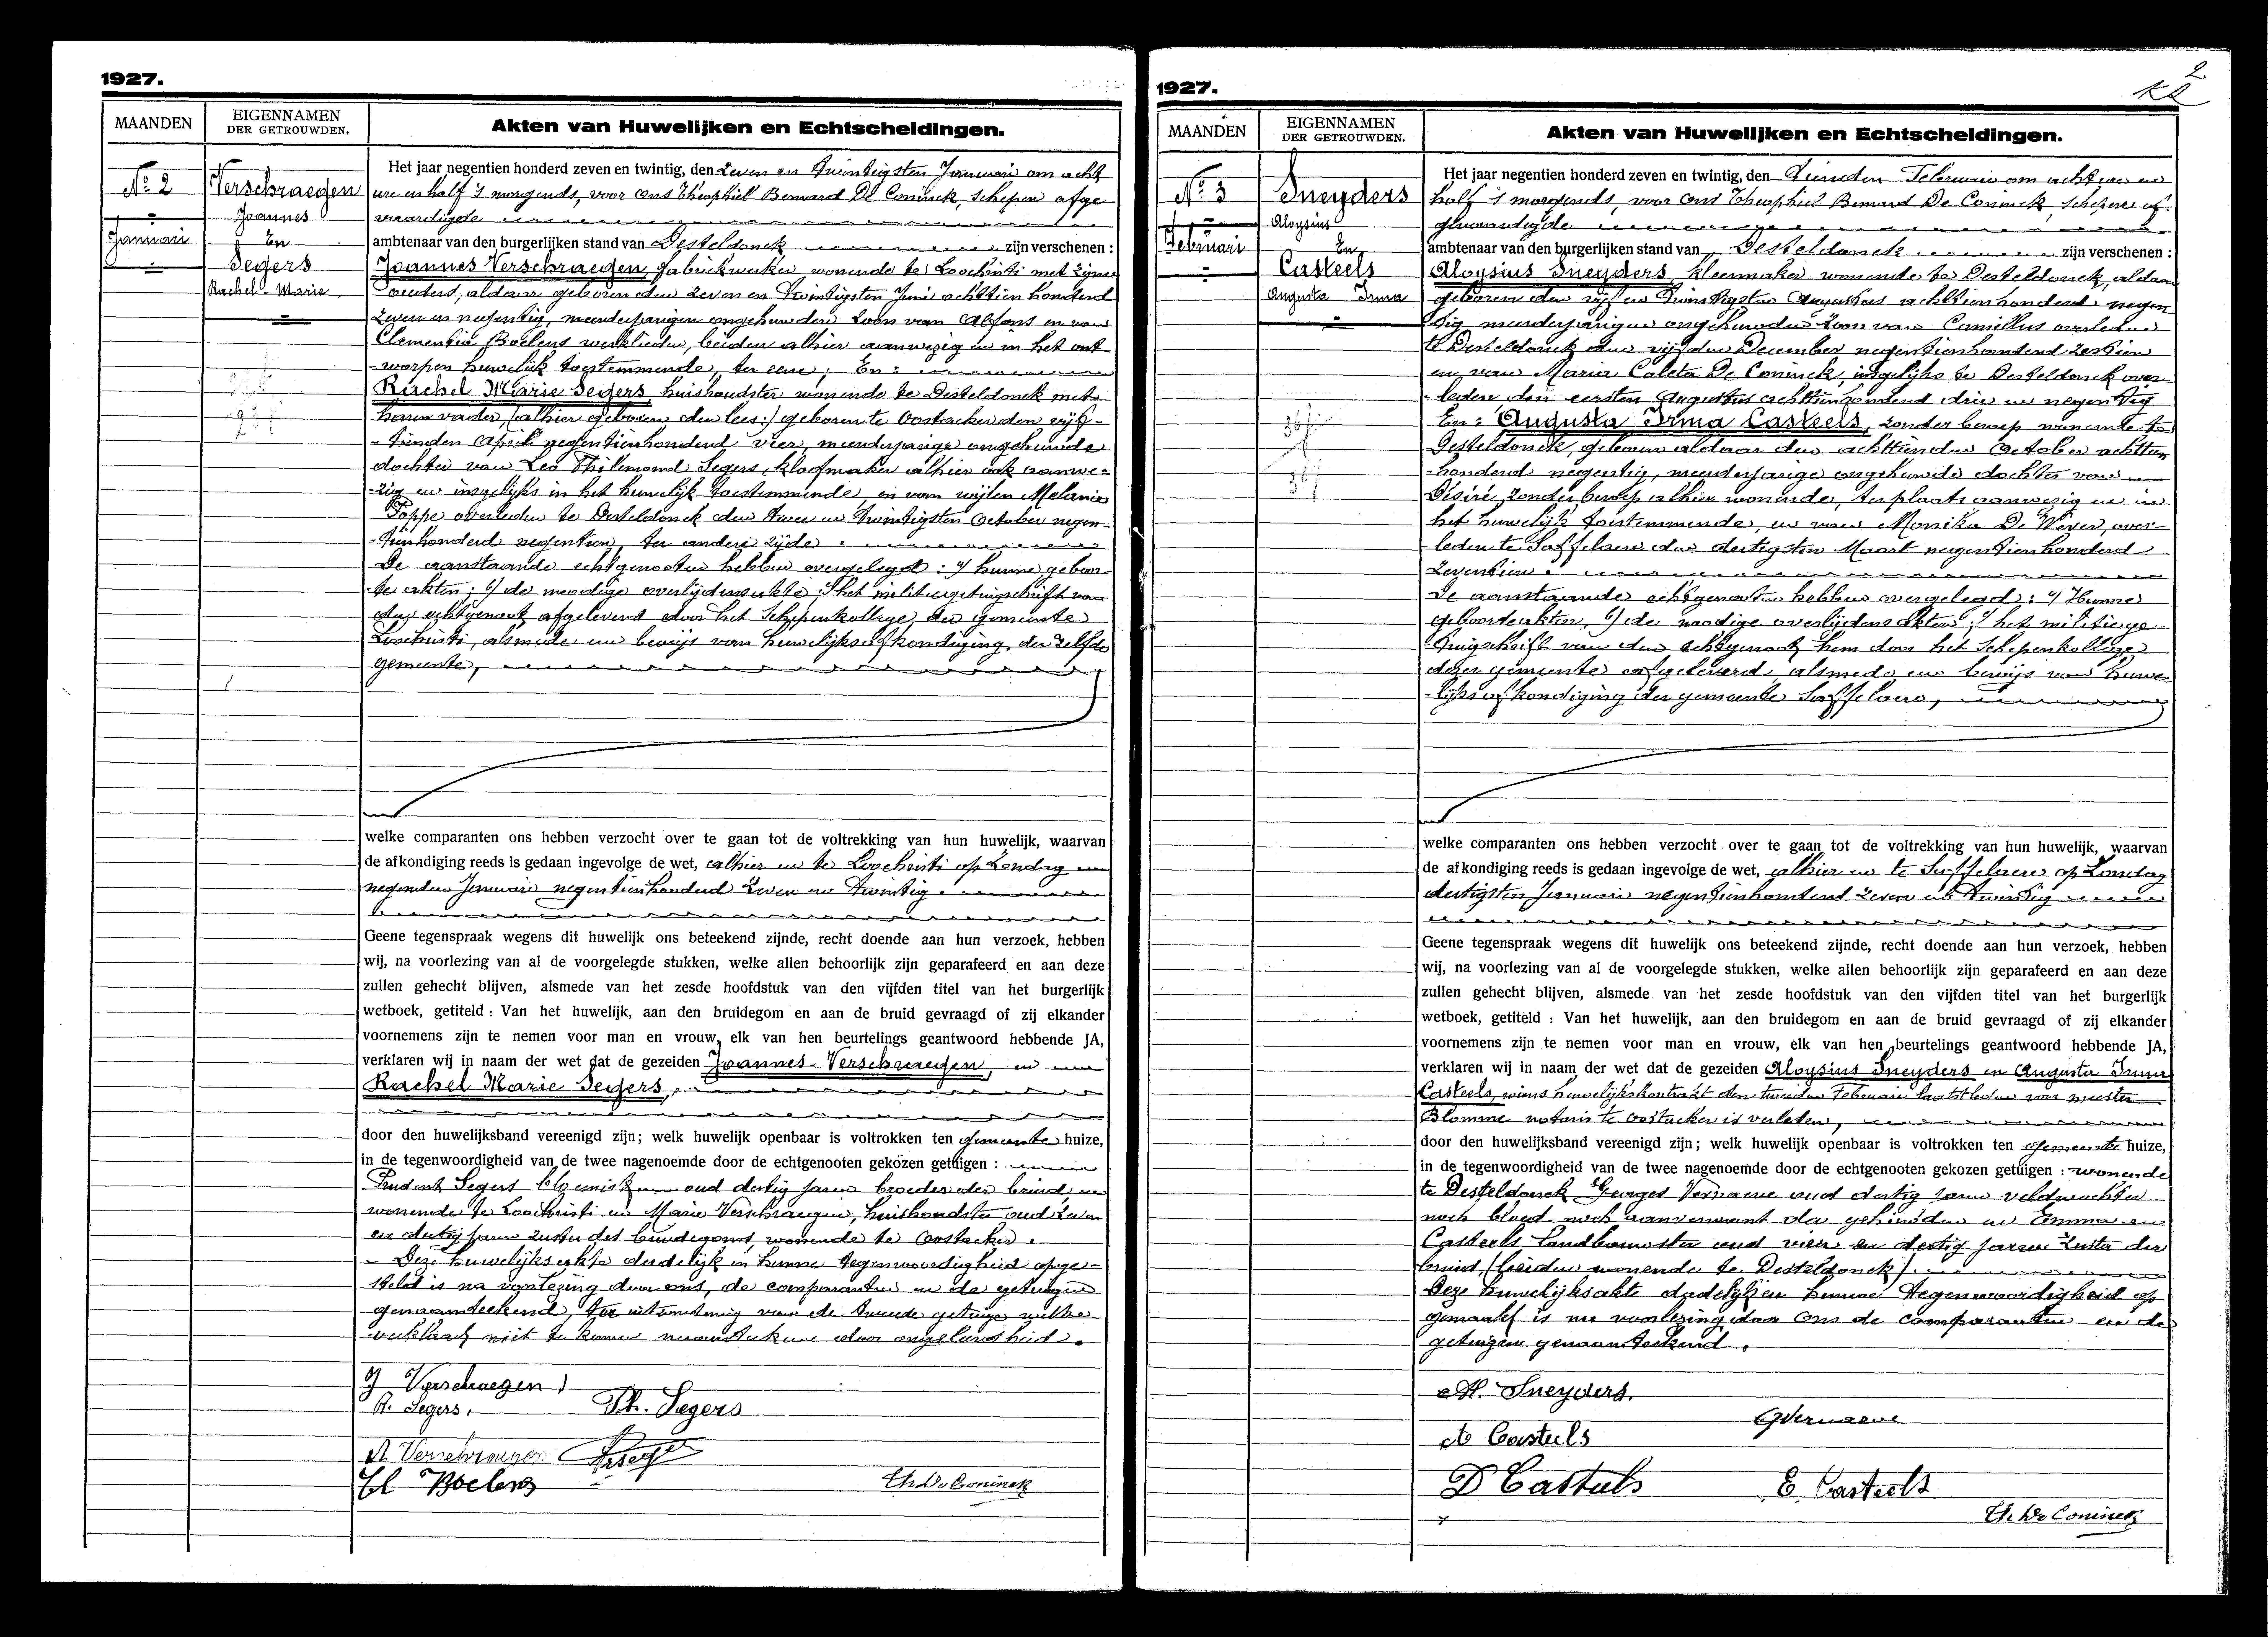 1927.
MAANDEN
EIGENNAMEN
DER GETROUWDEN.
Akten van Huwelijken en Echtscheidingen.
No 2
Januari
Verschraegen
Joannes
En
Segers
Rachel Marie
Het jaar negentien honderd zeven en twintig, den zeven en twintigsten Januari om acht
ure en half 's morgends, voor ons Theophiel Bernard De Coninck, schepen afge-
vaardigde
ambtenaar van den burgerlijken stand van Desteldonck zijn verschenen :
Joannes Verschraegen, fabriekwerker wonende te Loochristi met zijne
ouders, aldaar geboren den zeven en twintigsten Juni achttien honderd
zeven en negentig, meerderjarigen ongehuwden zoon van Alfons en van
Clementia Boelens werklieden, beiden alhier aanwezig en in het ont-
-worpen huwelijk toestemmende, ter eene; En:
Rachel Marie Segers, huishoudster wonende te Desteldonck met
haren vader, (alhier geboren den lees:) geboren te Oostacker den vijf-
-tienden April negentienhonderd vier, meerderjarige ongehuwde
dochter van Leo Philemond Segers, kloefmaker alhier ook aanwe-
-zig en insgelijks in het huwelijk toestemmende, en van wijlen Melanie
Poppe overleden te Desteldonck den twee en twintigsten October negen-
-tienhonderd negentien, ter andere zijde.
De aanstaande echtgenooten hebben overgelegd: a) hunne geboor-
-te akten; b) de noodige overlijdensakte; c) het militiegetuigschrift van
den echtgenoot, afgeleverd door het Schepenkollege der gemeente
Loochristi, alsmede een bewijs van huwelijksafkondiging, der zelfde
gemeente,
welke comparanten ons hebben verzocht over te gaan tot de voltrekking van hun huwelijk, waarvan
de afkondiging reeds is gedaan ingevolge de wet, alhier en te Loochristi op Zondag
negenden Januari negentienhonderd zeven en twintig.
Geene tegenspraak wegens dit huwelijk ons beteekend zijnde, recht doende aan hun verzoek, hebben
wij, na voorlezing van al de voorgelegde stukken, welke allen behoorlijk zijn geparafeerd en aan deze
zullen gehecht blijven, alsmede van het zesde hoofdstuk van den vijfden titel van het burgerlijk
wetboek, getiteld : Van het huwelijk, aan den bruidegom en aan de bruid gevraagd of zij elkander
voornemens zijn te nemen voor man en vrouw, elk van hen beurtelings geantwoord hebbende JA,
verklaren wij in naam der wet dat de gezeiden Joannes Verschraegen, en
Rachel Marie Segers,
door den huwelijksband vereenigd zijn; welk huwelijk openbaar is voltrokken ten gemeente huize,
in de tegenwoordigheid van de twee nagenoemde door de echtgenooten gekozen getuigen :
Prudent Segers bloemist oud dertig jaren broeder der bruid, en
wonende te Loochristi en Marie Verschraegen, huishoudster oud zeven
en dertig jaren zuster des bruidegoms, wonende te Oostacker.
- Deze huwelijksakte dadelijk in hunne tegenwoordigheid opge-
-steld is na voorlezing door ons, de comparanten en de getuigen
genaamteekend, ter uitzondering van de tweede getuige welke
verklaart niet te kunnen naamteekenen door ongeleerdheid.
J Verschraegen
R. Segers.
Ph. Segers
A Verschraegen
Cl Boelens
Th. De Coninck
1927.
2
MAANDEN
EIGENNAMEN
DER GETROUWDEN.
Akten van Huwelijken en Echtscheidingen.
No 3
Februari
Sneyders
Aloysius
En
Casteels
Augusta Irma
Het jaar negentien honderd zeven en twintig, den tienden Februari om acht ure en
half 's morgends, voor ons Theophiel Bernard De Coninck, schepen af-
gevaardigde
ambtenaar van den burgerlijken stand van Desteldonck zijn verschenen :
Aloysius Sneyders, kleermaker wonende te Desteldonck, aldaar
geboren den vijf en twintigsten Augustus achttienhonderd negen-
-tig meerderjarigen ongehuwden zoon van Camillus overleden
te Desteldonck den vijfden December negentienhonderd zestien
en van Maria Coleta De Coninck, insgelijks te Desteldonck over-
-leden den eersten Augustus achttienhonderd drie en negentig
En: Augusta Irma Casteels, zonder beroep wonende te
Desteldonck, geboren aldaar den achttienden October achttien
-honderd negentig, meerderjarige ongehuwde dochter van
Désiré, zonder beroep alhier wonende, ter plaats aanwezig en in
het huwelijk toestemmende, en van Monika De Wever, over-
leden te Saffelaere den dertigsten Maart negentienhonderd
zeventien.
De aanstaande echtgenooten hebben overgelegd: a) Hunne
geboorteakten, b) de noodige overlijdensakten; c) het militiege-
-tuigschrift van den echtgenoot hem door het Schepenkollege
dezer gemeente afgeleverd, alsmede een bewijs van huwe-
-lijksafkondiging der gemeente Saffelaere,
welke comparanten ons hebben verzocht over te gaan tot de voltrekking van hun huwelijk, waarvan
de afkondiging reeds is gedaan ingevolge de wet, alhier en te Saffelaere op Zondag
dertigsten Januari negentienhonderd zeven en twintig
Geene tegenspraak wegens dit huwelijk ons beteekend zijnde, recht doende aan hun verzoek, hebben
wij, na voorlezing van al de voorgelegde stukken, welke allen behoorlijk zijn geparafeerd en aan deze
zullen gehecht blijven, alsmede van het zesde hoofdstuk van den vijfden titel van het burgerlijk
wetboek, getiteld : Van het huwelijk, aan den bruidegom en aan de bruid gevraagd of zij elkander
voornemens zijn te nemen voor man en vrouw, elk van hen beurtelings geantwoord hebbende JA,
verklaren wij in naam der wet dat de gezeiden Aloysius Sneyders en Augusta Irma
Casteels, wiens huwelijkskontrakt den tweeden Februari laatstleden voor meester
Blomme notaris te Oostacker is verleden,
door den huwelijksband vereenigd zijn; welk huwelijk openbaar is voltrokken ten gemeente huize,
in de tegenwoordigheid van de twee nagenoemde door de echtgenooten gekozen getuigen : wonende
te Desteldonck Georges Vernaeve oud dertig jaren veldwachter
noch bloed- noch aanverwant der gehuwden en Emma
Casteels landbouwster oud vier en dertig jaren zuster der
bruid, (beiden wonende te Desteldonck).
Deze huwelijksakte dadelijk in hunne tegenwoordigheid op
gemaakt is na voorlezing door ons de comparanten en de
getuigen genaamteekend.
Al. Sneyders.
G Vernaeve
A Casteels
D Casteels
E Casteels
Th. De Coninck